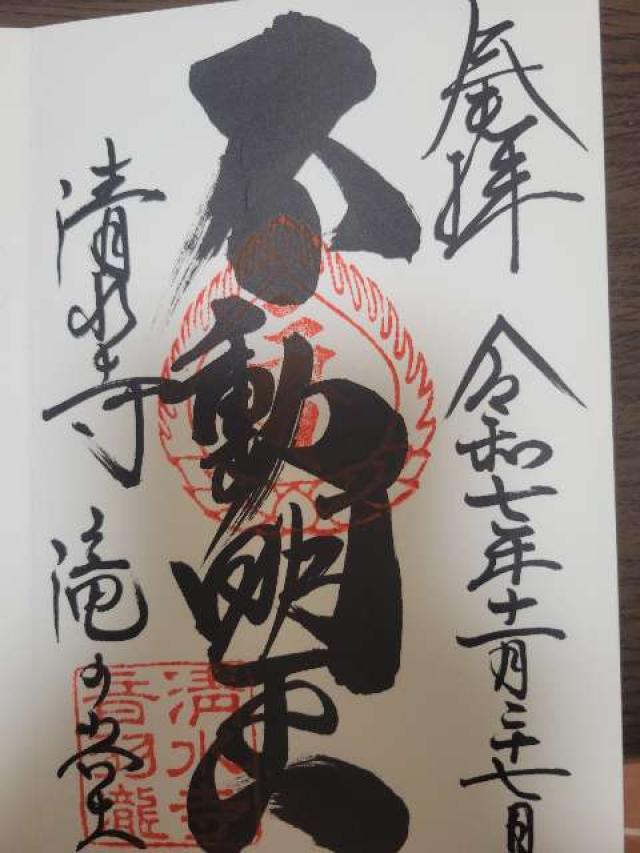 奉拝 令和七年十一月二十七日
不動明王
清水寺 滝の堂
清水寺
音羽瀧